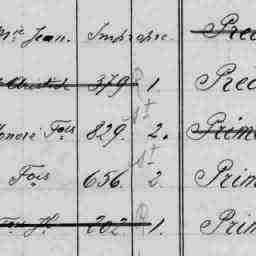 Mie Jean. Impropre. Pred
379 1. Pred
Honoré Fois 829. 2. Prim
Fois 656. 2. Prim
Fois Jh 202 1. Prim